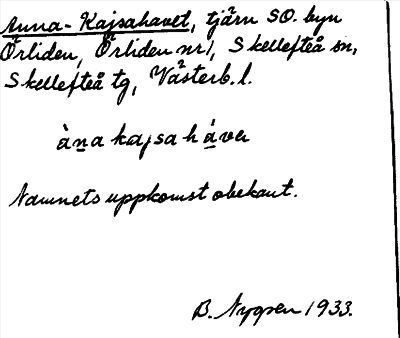 Anna-Kajsahavet, tjärn SO. byn
Örliden, Örliden nr 1, Skellefteå sn,
Skellefteå tg, Västerb. l.
àna kajsa háver
Namnets uppkomst obekant.
B. Nygren 1933.